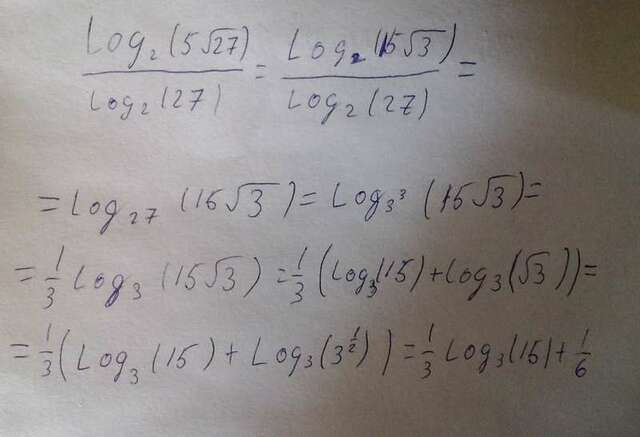 Log₂(5√27) / Log₂(27) = Log₂(15√3) / Log₂(27) =
= Log₂₇ (15√3) = Log₃³ (15√3) =
= 1/3 Log₃ (15√3) = 1/3 (Log₃(15) + Log₃(√3)) =
= 1/3 (Log₃(15) + Log₃(3^(1/2))) = 1/3 Log₃(15) + 1/6